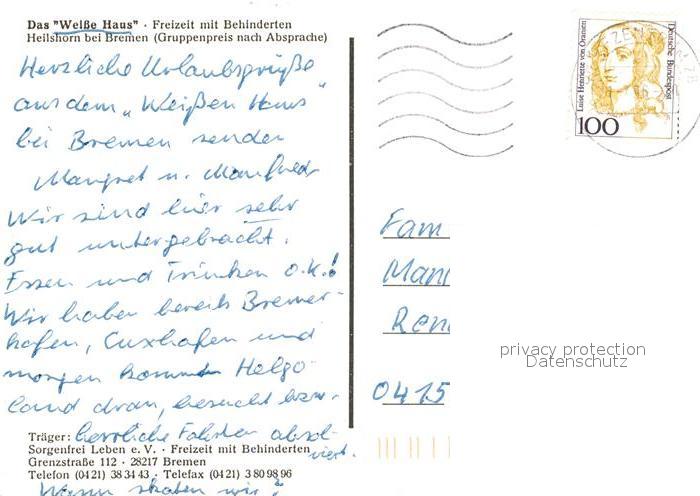 Das "Weiße Haus" · Freizeit mit Behinderten
Heilshorn bei Bremen (Gruppenpreis nach Absprache)
Herzliche Urlaubsgrüße
aus dem „Weißen Haus"
bei Bremen senden
Margret u. Manfred
Wir sind hier sehr
gut untergebracht.
Essen und Trinken o.k.!
Wir haben bereits Bremer-
hafen, Cuxhafen und
morgen kommt Helgo-
land dran, besucht bzw.
herrliche Fahrten absol-
viert.
Träger:
Sorgenfrei Leben e. V. · Freizeit mit Behinderten
Grenzstraße 112 · 28217 Bremen
Telefon (04 21) 38 34 43 · Telefax (04 21) 3 80 98 96
Wann skaten wir?
Luise Henriette von Oranien
Deutsche Bundespost
100
Fam
Mani
Ren
0415
privacy protection
Datenschutz